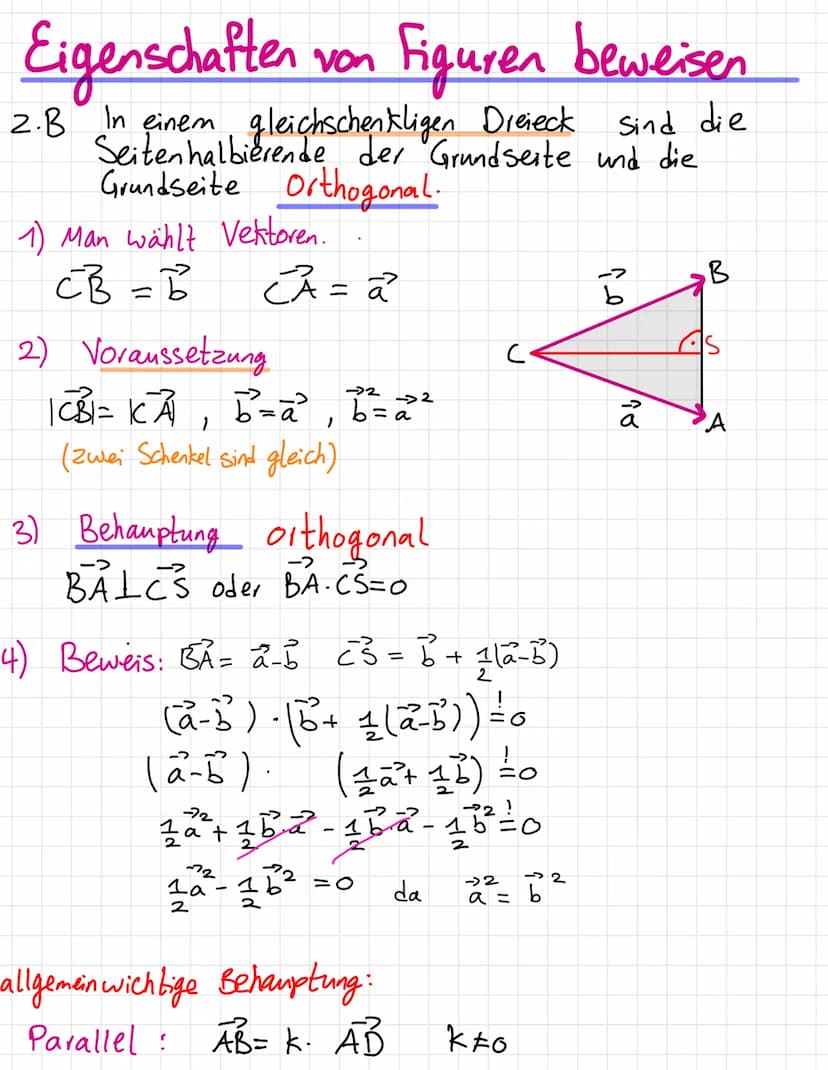 Eigenschaften von Figuren beweisen
z.B In einem gleichschenkligen Dreieck sind die
Seitenhalbierende der Grundseite und die
Grundseite Orthogonal.
1) Man wählt Vektoren.
C⃗B = b⃗ C⃗A = a⃗
b⃗
B
2) Voraussetzung
C
S
|C⃗B| = |C⃗A| , b⃗ = a⃗ , b⃗² = a⃗²
a⃗
A
(zwei Schenkel sind gleich)
3) Behauptung orthogonal
B⃗A ⊥ C⃗S oder B⃗A · C⃗S = 0
4) Beweis: B⃗A = a⃗ - b⃗ C⃗S = b⃗ + 1/2(a⃗ - b⃗)
(a⃗ - b⃗) · (b⃗ + 1/2(a⃗ - b⃗)) =! 0
(a⃗ - b⃗) · (1/2 a⃗ + 1/2 b⃗) =! 0
1/2 a⃗² + 1/2 b⃗ · a⃗ - 1/2 b⃗ · a⃗ - 1/2 b⃗² =! 0
1/2 a⃗² - 1/2 b⃗² = 0 da a⃗² = b⃗²
allgemein wichtige Behauptung:
Parallel : A⃗B = k · A⃗D k ≠ 0